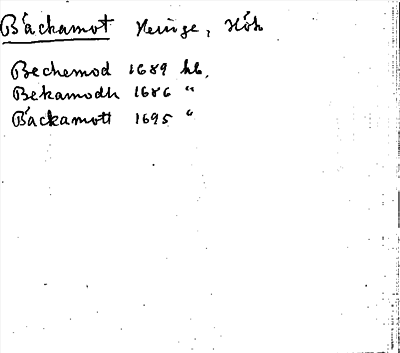 Bäckamot Heinge, Hök
Bechemod 1689 hb.
Bekamodh 1686 "
Bäckamott 1695 "